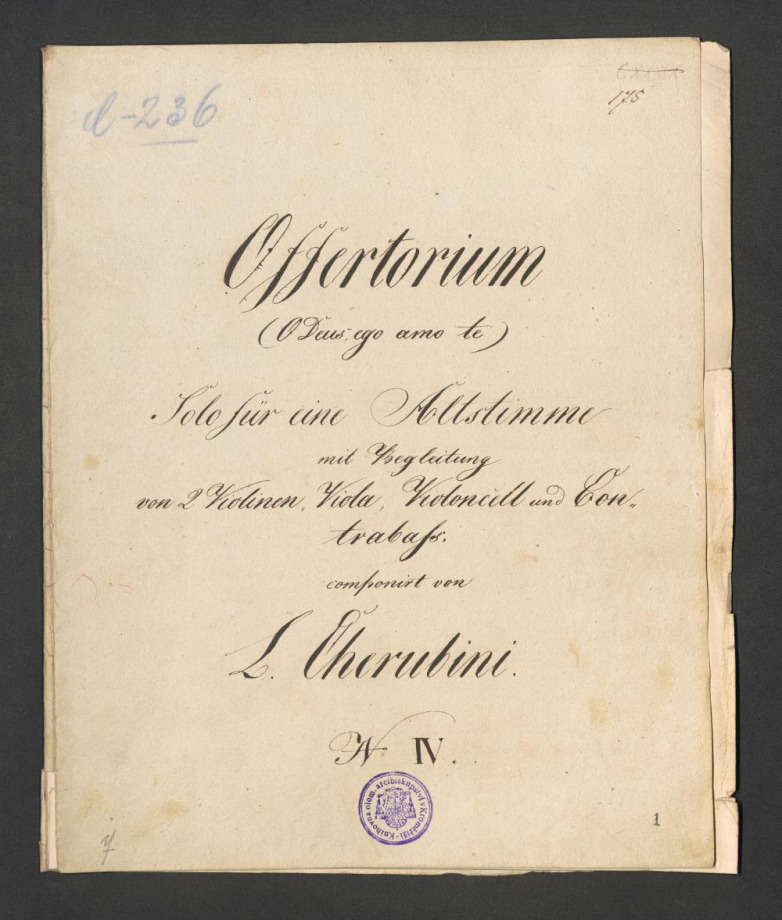 d-236
175
Offertorium
(O Deus, ego amo te)
Solo für eine Altstimme
mit Begleitung
von 2 Violinen, Viola, Violoncell und Con-
trabaſs.
componirt von
L. Cherubini.
No IV.
Knihovna olom. arcibiskupství v Kroměříži
1